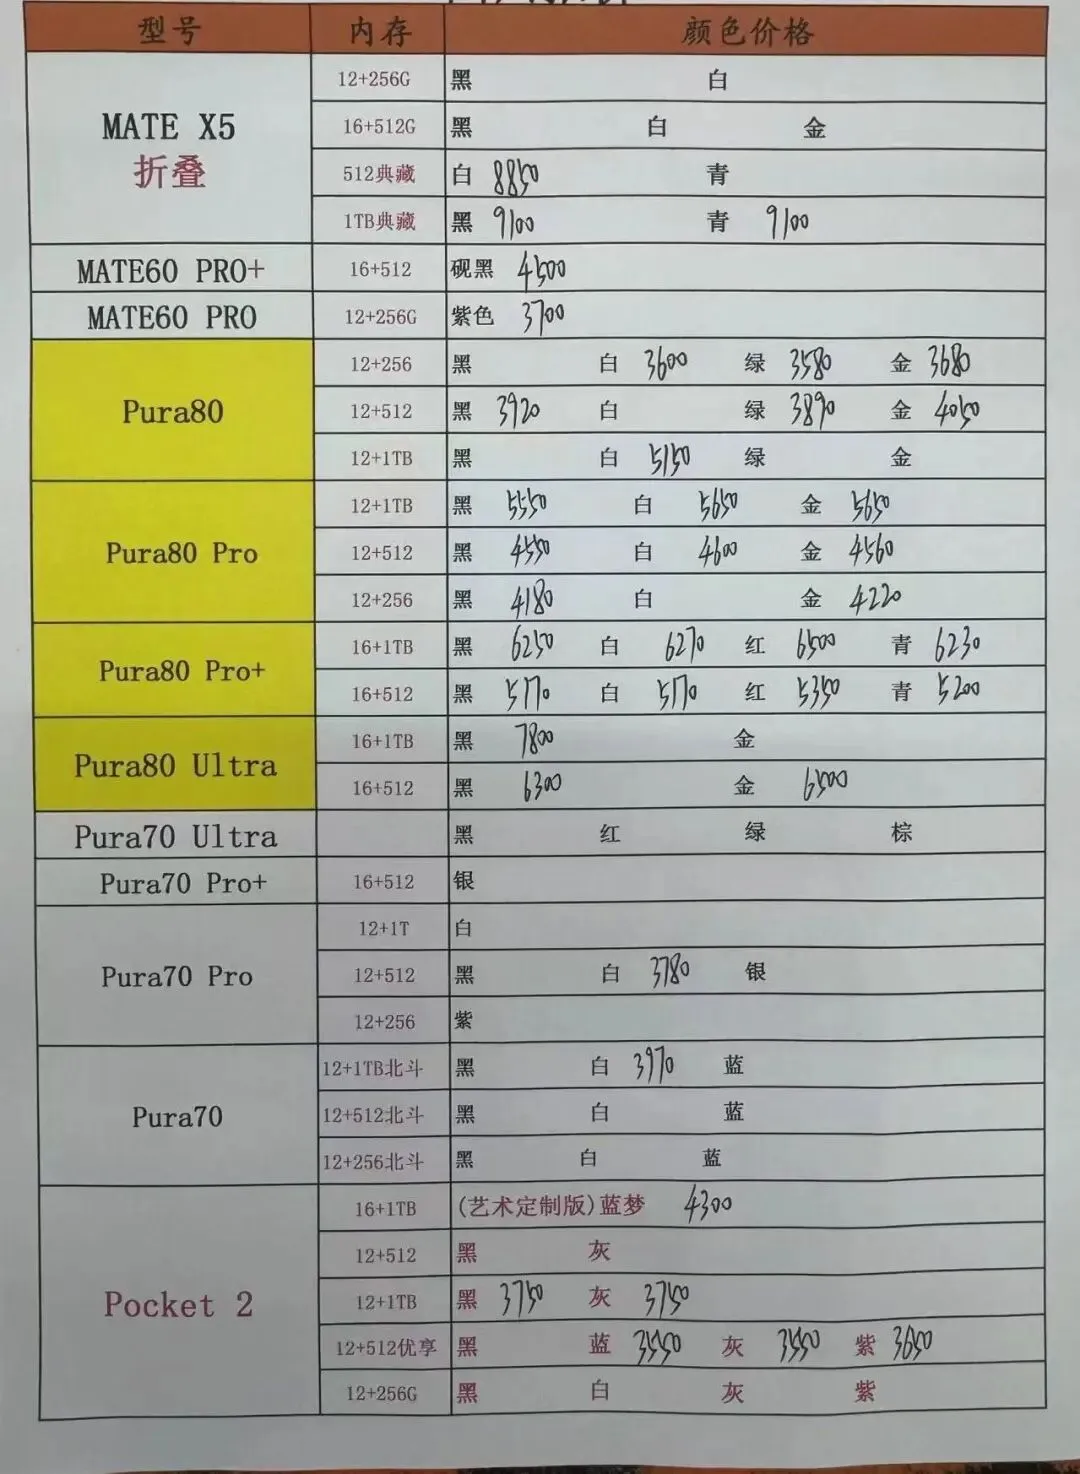 型号 内存 颜色价格
12+256G 黑 白
MATE X5 16+512G 黑 白 金
折叠 512典藏 白 8850 青
1TB典藏 黑 9100 青 9100
MATE60 PRO+ 16+512 砚黑 4500
MATE60 PRO 12+256G 紫色 3700
12+256 黑 白 3600 绿 3580 金 3680
Pura80 12+512 黑 3920 白 绿 3890 金 4050
12+1TB 黑 白 5150 绿 金
12+1TB 黑 5550 白 5650 金 5650
Pura80 Pro 12+512 黑 4550 白 4600 金 4560
12+256 黑 4180 白 金 4220
16+1TB 黑 6250 白 6270 红 6500 青 6230
Pura80 Pro+ 16+512 黑 5170 白 5170 红 5350 青 5200
16+1TB 黑 7800 金
Pura80 Ultra 16+512 黑 6300 金 6500
Pura70 Ultra 黑 红 绿 棕
Pura70 Pro+ 16+512 银
12+1T 白
Pura70 Pro 12+512 黑 白 3780 银
12+256 紫
12+1TB北斗 黑 白 3970 蓝
Pura70 12+512北斗 黑 白 蓝
12+256北斗 黑 白 蓝
16+1TB (艺术定制版)蓝梦 4300
12+512 黑 灰
Pocket 2 12+1TB 黑 3750 灰 3750
12+512优享 黑 蓝 3550 灰 3550 紫 3650
12+256G 黑 白 灰 紫